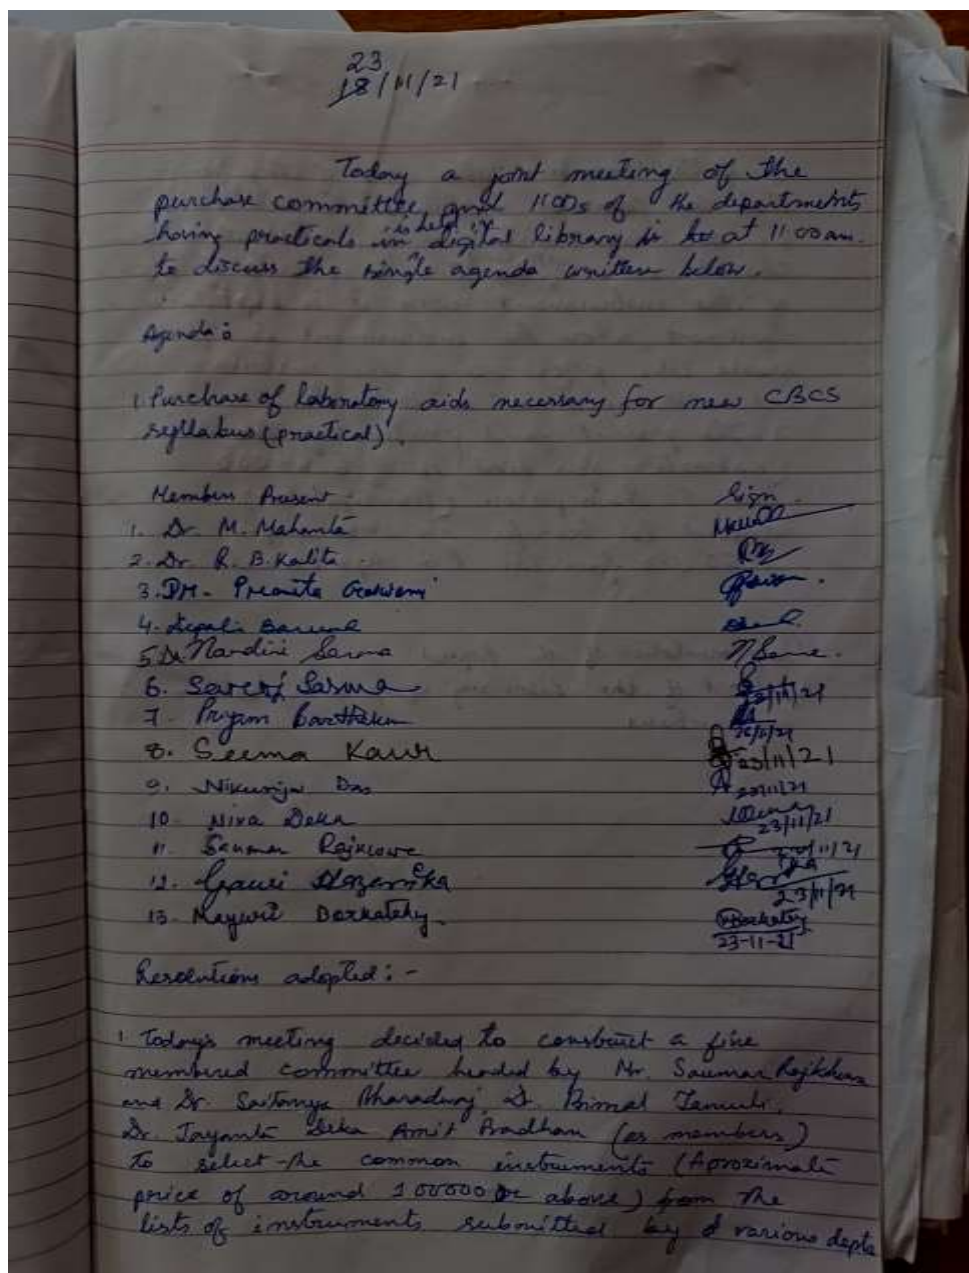 23
18/11/21
Today a joint meeting of the
purchase committee and HODs of the departments
having practicals is held in digital library at 11:00 am.
to discuss the single agenda written below.
Agenda:
1. Purchase of laboratory aids necessary for new CBCS
syllabus (practical).
Members Present Sign
1. Dr. M. Mahanta
2. Dr R. B. Kalita
3. Goswami
4. Dipali Baruah
5. Dr Nandini Sarma N Sarma.
6. Sarma 23/11/21
7. Priyam 23/11/21
8. Seema Kaur 23/11/21
9. Nikunja Das 23/11/21
10. Nixa Deka 23/11/21
11. Saumar Rajkhowa 23/11/21
12. Gauri Hazarika 23/11/21
13. Borkataky 23-11-21
Resolutions adopted: -
1. Today's meeting decided to construct a five
membered committee headed by Mr. Saumar Rajkhowa
and Dr. Bharadwaj, Dr. Bimal Tamuli,
Dr. Jayanta Deka Amit Pradhan (as members)
to select the common instruments (Aproximate
price of around 100000 or above) from the
lists of instruments submitted by various depts